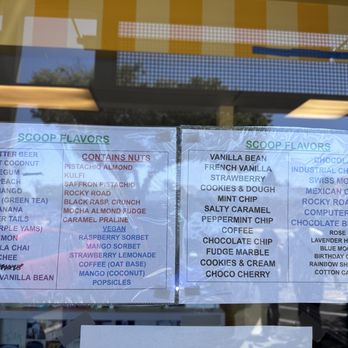 SCOOP FLAVORS
TTER BEER
T COCONUT
EGUM
PEACH
MANGO
(GREEN TEA)
ANANA
ER TAILS
RPLE YAMS)
MON
LA CHAI
CHEE
VANILLA BEAN
CONTAINS NUTS
PISTACHIO ALMOND
KULFI
SAFFRON PISTACHIO
ROCKY ROAD
BLACK RASP. CRUNCH
MOCHA ALMOND FUDGE
CARAMEL PRALINE
VEGAN
RASPBERRY SORBET
MANGO SORBET
STRAWBERRY LEMONADE
COFFEE (OAT BASE)
MANGO (COCONUT)
POPSICLES
SCOOP FLAVORS
VANILLA BEAN
FRENCH VANILLA
STRAWBERRY
COOKIES & DOUGH
MINT CHIP
SALTY CARAMEL
PEPPERMINT CHIP
COFFEE
CHOCOLATE CHIP
FUDGE MARBLE
COOKIES & CREAM
CHOCO CHERRY
CHOCOL
INDUSTRIAL CH
SWISS MO
MEXICAN C
ROCKY ROA
COMPUTER
CHOCOLATE B
ROSE
LAVENDER H
BLUE MO
BIRTHDAY C
RAINBOW SH
COTTON CA